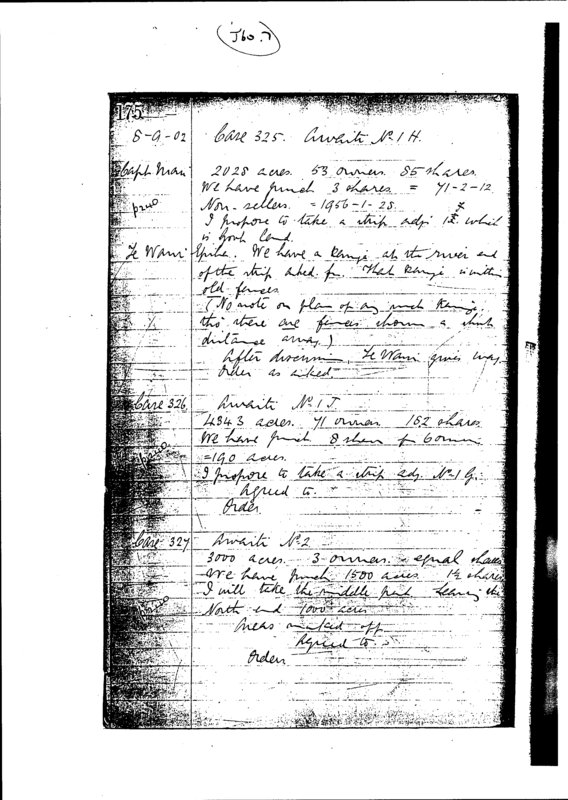 J60.7
175
8-9-02 Case 325. Awaiti No 1 H.
Capt Mair 2028 acres. 53 owners. 85 shares
We have purch 3 shares = 71-2-12
Non-sellers = 1956-1-28.
I propose to take a strip adj 1 which
is Govt land.
Te Wani We have a Kainga at the river end
of the strip asked for. That Kainga is within
old fences
(No note on plan of any such Kainga,
tho' there are fences shown a short
distance away.)
After discussion, Te Wani gives way.
Order as asked.
Case 326. Awaiti No 1 J
4343 acres. 71 owners 152 shares
We have purch 8 shares fr 6 owners
=190 acres.
I propose to take a strip adj. No 1 G.
Agreed to.
Order
Case 327 Awaiti No 2
3000 acres. 3 owners. - equal shares
We have purch 1500 acres. 1½ shares
I will take the middle part leaving the
North end 1000 acres
Areas marked off
Agreed to
Orders